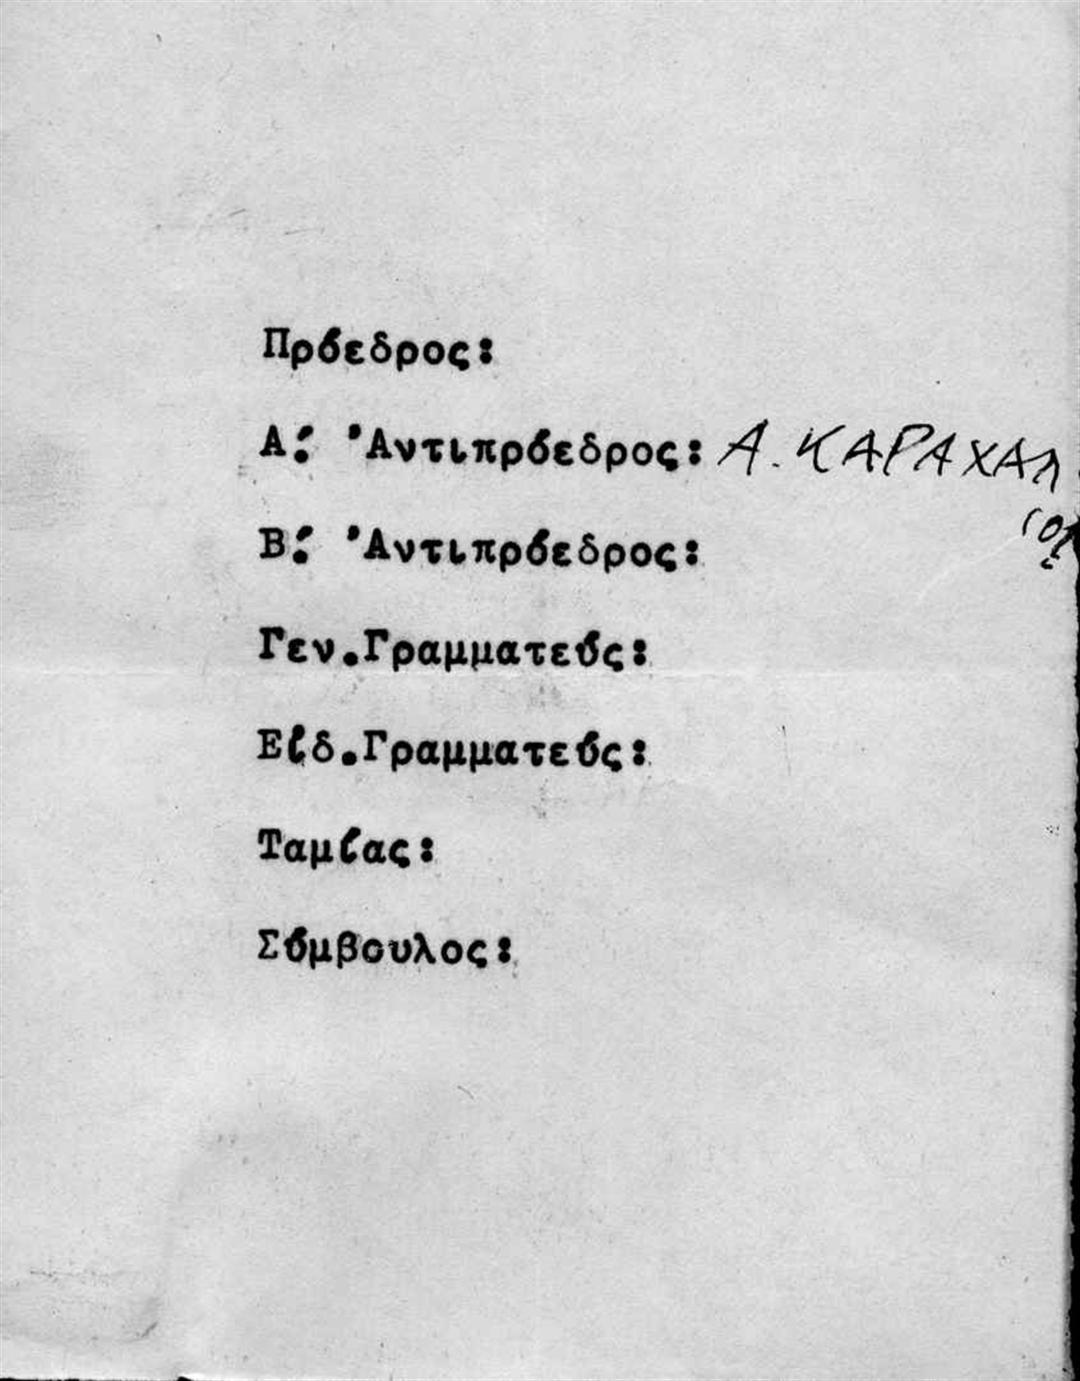 Πρόεδρος:
Α: 'Αντιπρόεδρος: Α. ΚΑΡΑΧΑΛ
Β: 'Αντιπρόεδρος:
Γεν.Γραμματεύς:
Είδ.Γραμματεύς:
Ταμίας:
Σύμβουλος: